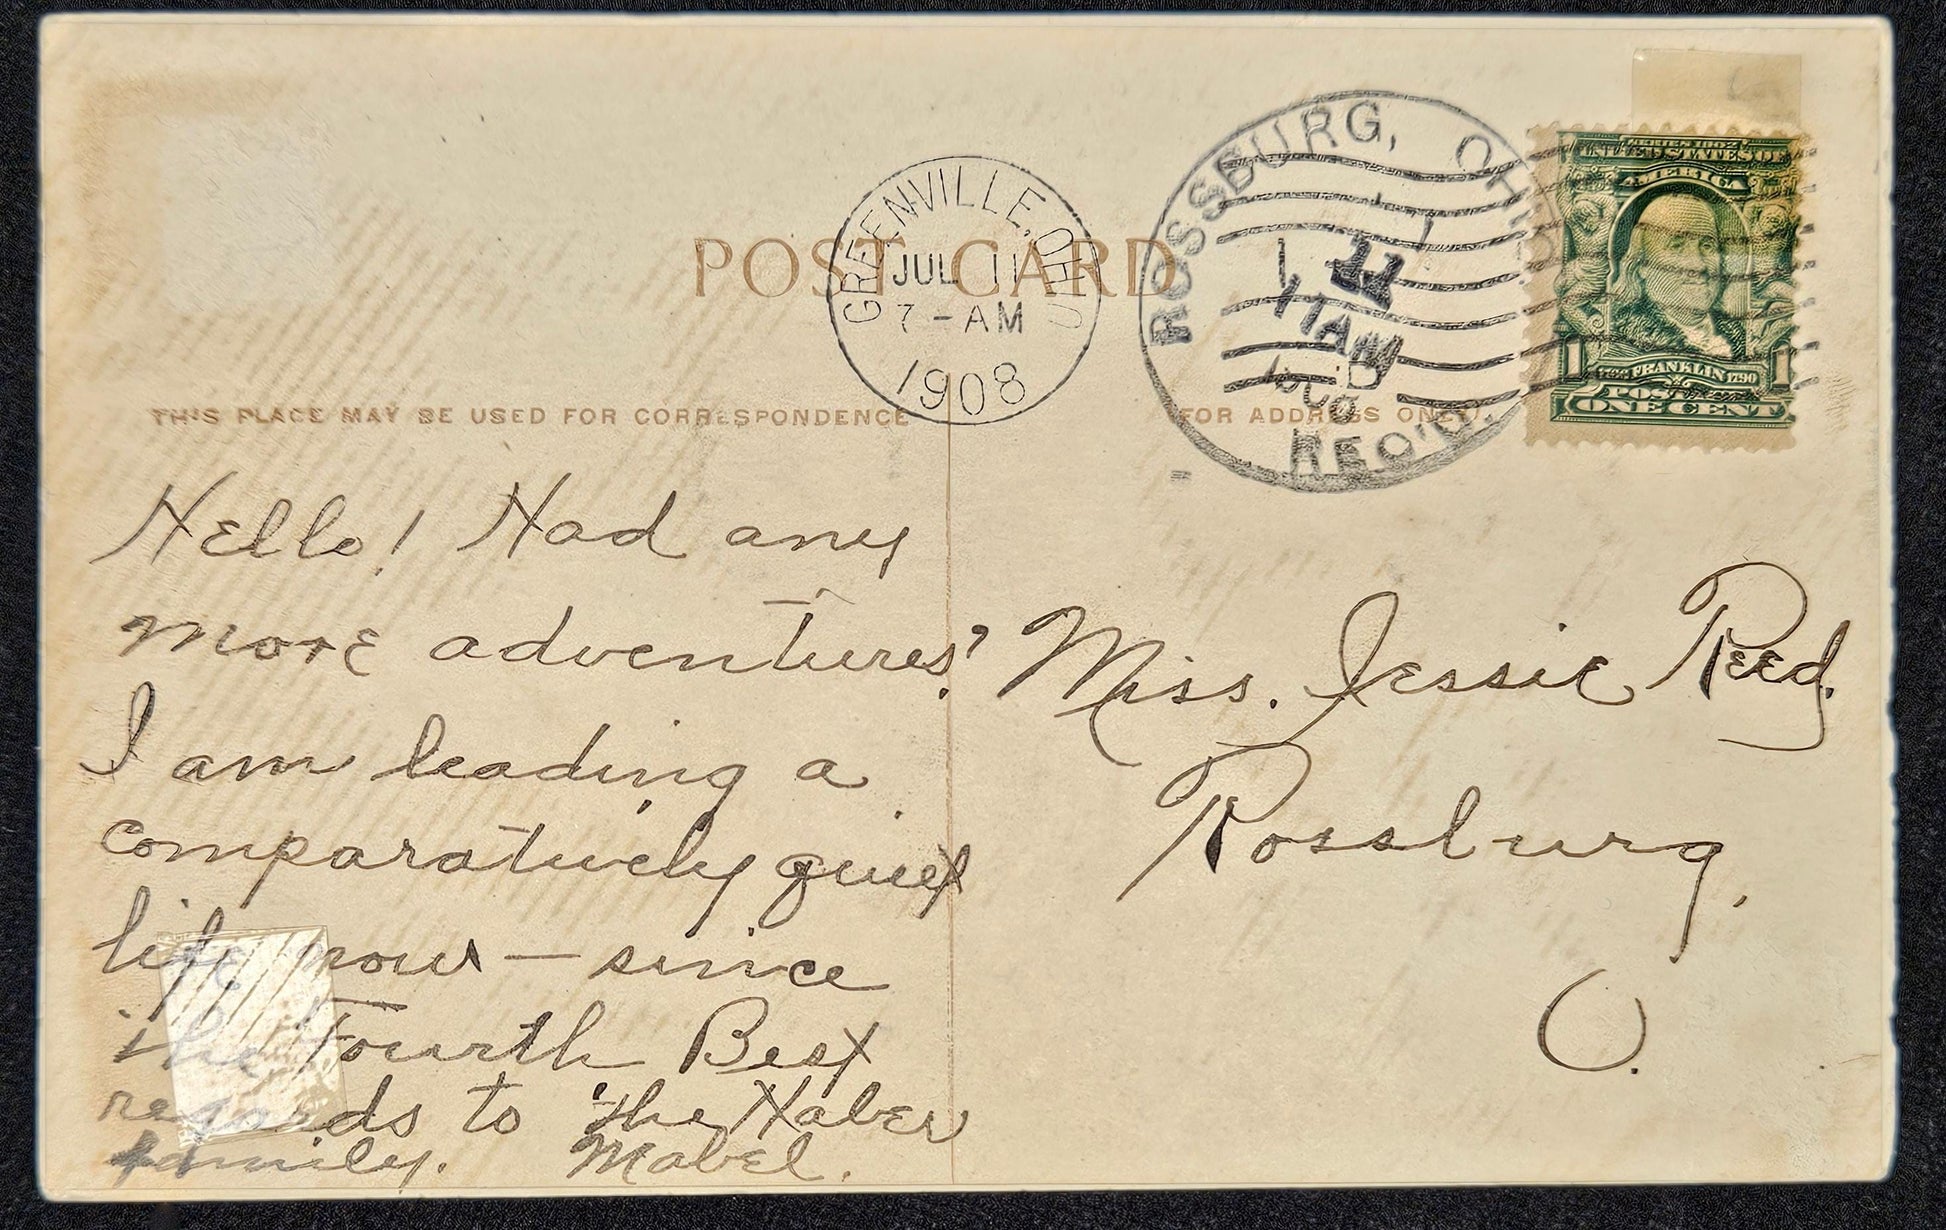 POST CARD
GREENVILLE, OHIO
JUL 11
7-AM
1908
ROSSBURG, OHIO
11
11AM
REC'D.
UNITED STATES OF
AMERICA
1
1
FRANKLIN 1790
ONE CENT
THIS PLACE MAY BE USED FOR CORRESPONDENCE
FOR ADDRESS ONLY.
Hello! Had any
more adventures?
I am leading a
comparatively quiet
life now — since
the Fourth Best
regards to the Haber
family. Mabel.
Miss. Jessie Reed.
Rossburg,
O.